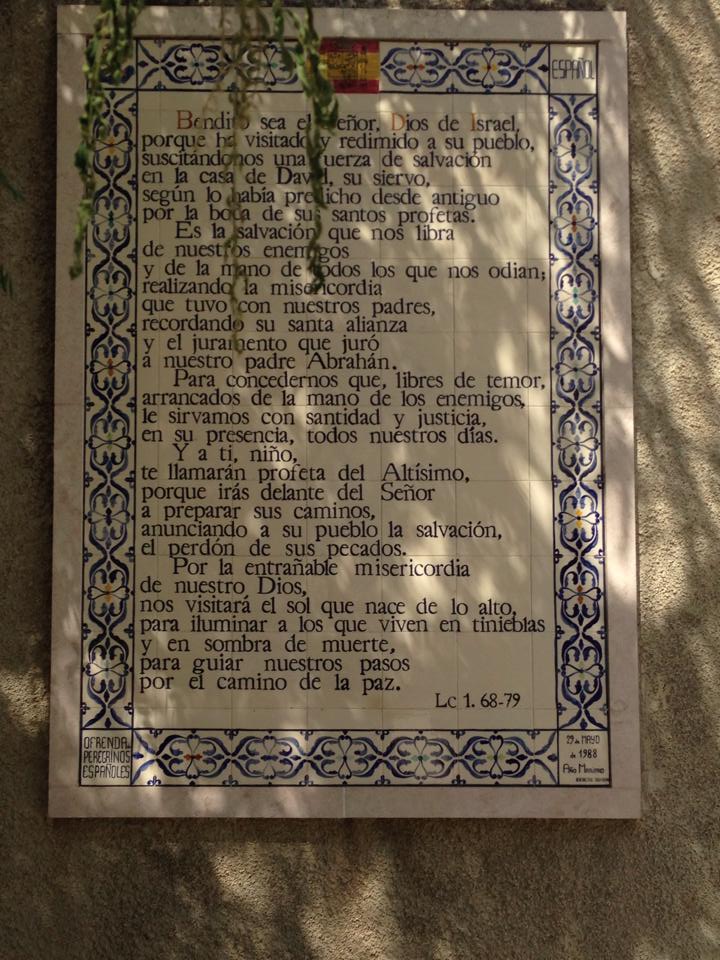 ESPAÑOL
Bendito sea el Señor, Dios de Israel,
porque ha visitado y redimido a su pueblo,
suscitándonos una fuerza de salvación
en la casa de David, su siervo,
según lo había predicho desde antiguo
por la boca de sus santos profetas.
Es la salvación que nos libra
de nuestros enemigos
y de la mano de todos los que nos odian;
realizando la misericordia
que tuvo con nuestros padres,
recordando su santa alianza
y el juramento que juró
a nuestro padre Abrahán.
Para concedernos que, libres de temor,
arrancados de la mano de los enemigos,
le sirvamos con santidad y justicia,
en su presencia, todos nuestros días.
Y a ti, niño,
te llamarán profeta del Altísimo,
porque irás delante del Señor
a preparar sus caminos,
anunciando a su pueblo la salvación,
el perdón de sus pecados.
Por la entrañable misericordia
de nuestro Dios,
nos visitará el sol que nace de lo alto,
para iluminar a los que viven en tinieblas
y en sombra de muerte,
para guiar nuestros pasos
por el camino de la paz.
Lc 1. 68-79
OFRENDA
PEREGRINOS
ESPAÑOLES
29 de MAYO
de 1988
Año Mariano